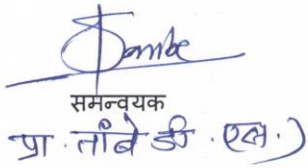 Tambe
समन्वयक
प्रा. तांबे डी. एल.)